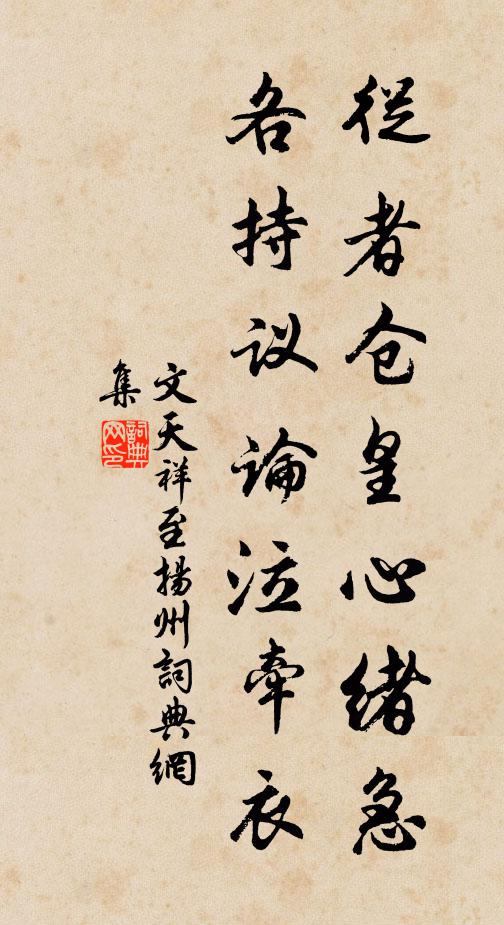 從者仓皇心緒急
各持议論泣牽衣
文天祥至揚州詞典網
集
詞典
网印